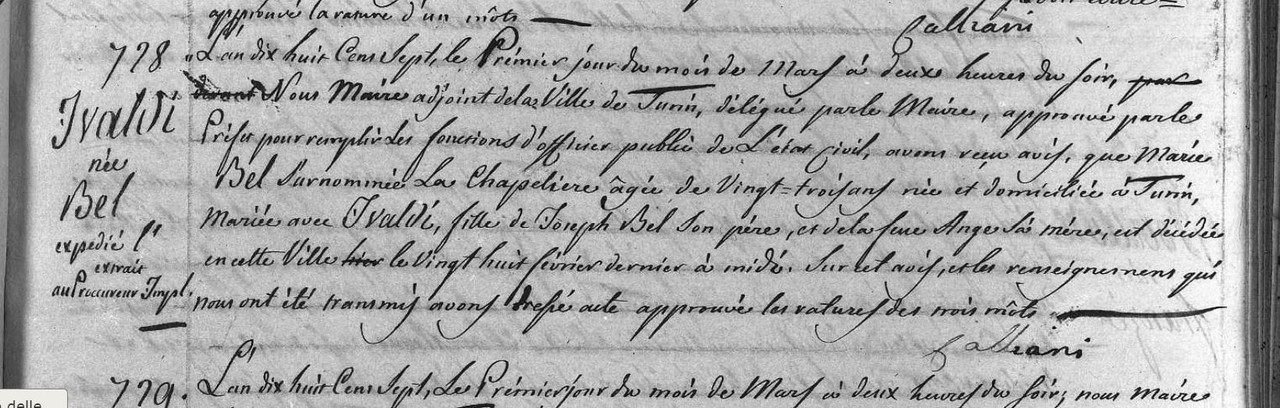 approuvé la rature d'un môts
728 L'an dix huit Cens Sept, le Prémier jour du mois de Mars à deux heures du soir, par
devant Nous Maire adjoint de la Ville de Turin, délégué par le Maire, approuvé par le
Préfet pour remplir les fonctions d'officier public de L'état Civil, avons reçu avis, que Marie
Bel Surnommée La Chapeliere âgée de Vingt=trois ans née et domiciliée à Turin,
Mariée avec Ivaldi, fille de Joseph Bel Son père, et de la feue Ange Sa mére, est décédée
en cette Ville hier le Vingt huit février dernier à midi. Sur cet avis, et les renseignemens qui
nous ont été transmis avons dressé acte approuvée les ratures des trois môts
Ivaldi
née
Bel
expedié l'
extrait
au Procureur Impl.
729. L'an dix huit Cens Sept, Le Prémier jour du mois de Mars à deux heures du Soir; nous Maire
delle